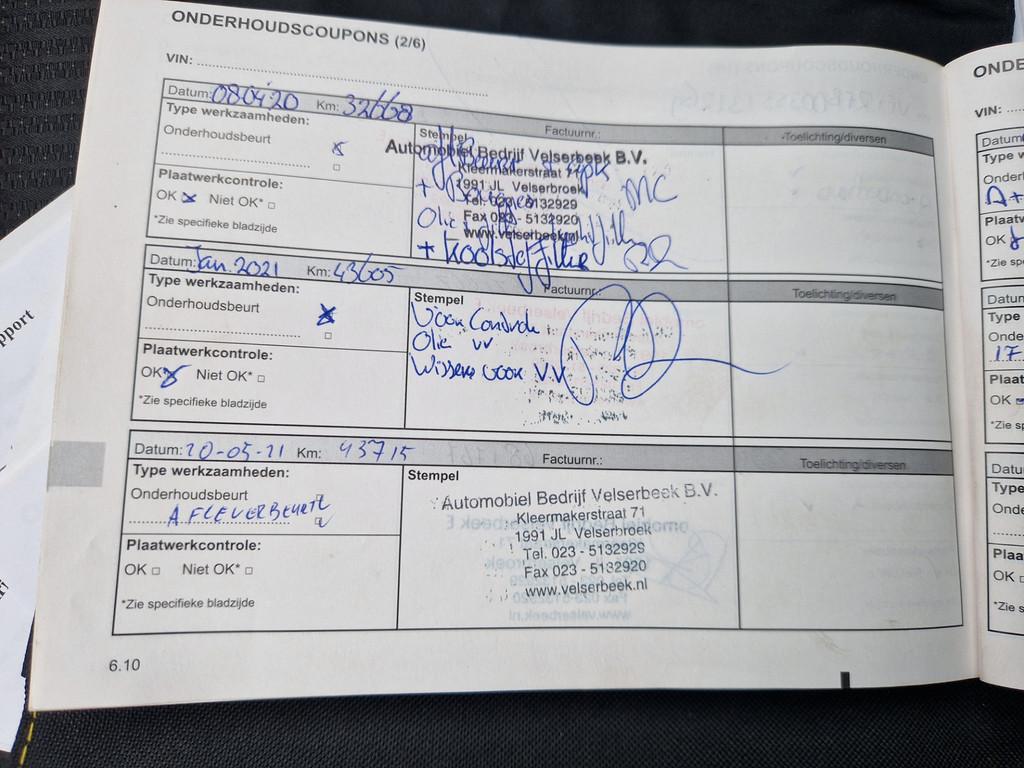 ONDERHOUDSCOUPONS (2/6)
VIN:
Datum: 080420 Km: 32668
Type werkzaamheden: Factuurnr.: Toelichting/diversen
Onderhoudsbeurt
Plaatwerkcontrole:
OK Niet OK*
*Zie specifieke bladzijde
Stempel
Automobiel Bedrijf Velserbeek B.V.
Kleermakerstraat 71
+ 1991 JL Velserbroek MC
Tel. 023 - 5132929
Olie Fax 023 - 5132920
www.velserbeek.nl
+ koolstoffilter
Datum: Jan. 2021 Km: 43605
Type werkzaamheden: Factuurnr.: Toelichting/diversen
Onderhoudsbeurt
Plaatwerkcontrole:
OK Niet OK*
*Zie specifieke bladzijde
Stempel
Voor Controle
Olie vv
Wissers voor V.V
Datum: 20-05-21 Km: 43715
Type werkzaamheden: Factuurnr.: Toelichting/diversen
Onderhoudsbeurt
AFLEVERBEURT
Plaatwerkcontrole:
OK Niet OK*
*Zie specifieke bladzijde
Stempel
Automobiel Bedrijf Velserbeek B.V.
Kleermakerstraat 71
1991 JL Velserbroek
Tel. 023 - 5132929
Fax 023 - 5132920
www.velserbeek.nl
6.10
pport
ONDE
VIN:
Datum
Type w
Onder
A+
Plaatw
OK
*Zie sp
Datun
Type
Onde
17
Plaat
OK
*Zie s
Datu
Type
Onde
Plaa
OK
*Zie s